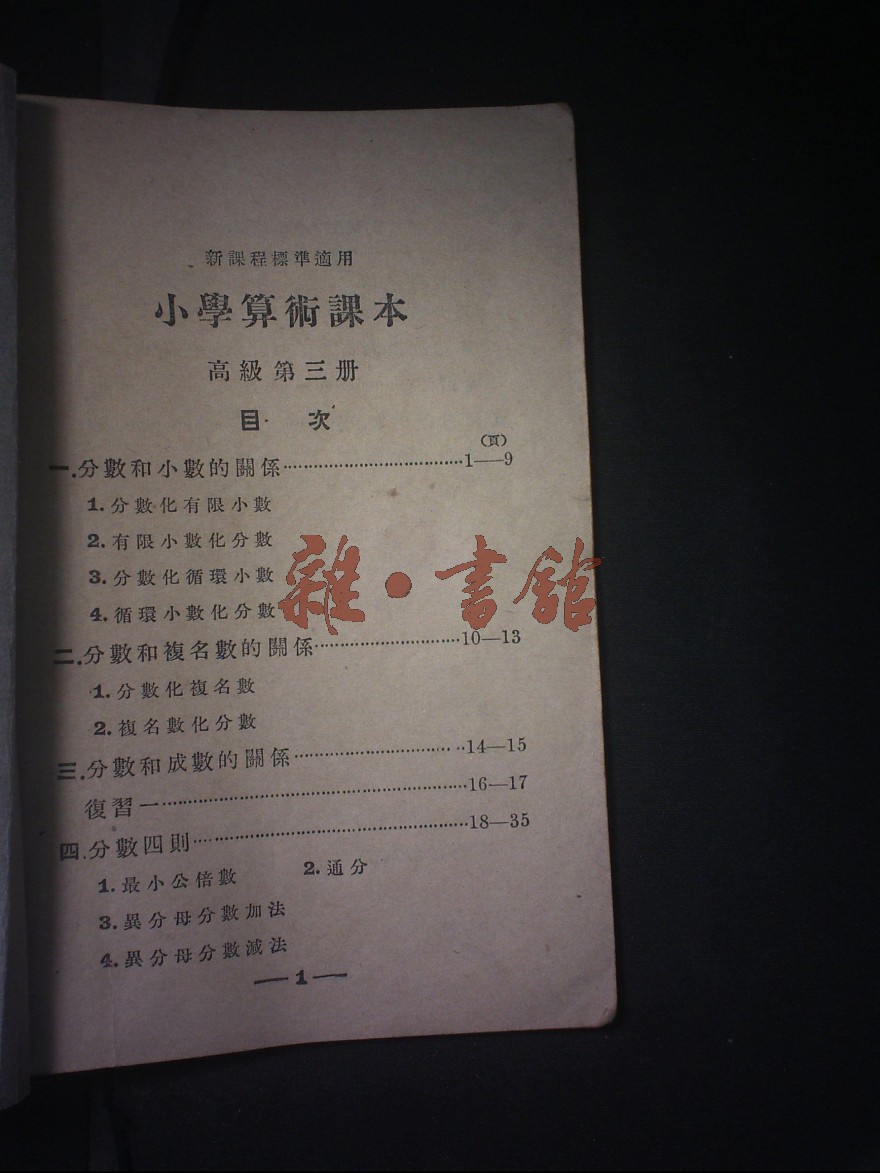 新課程標準適用
小學算術課本
高級第三册
目 次
(頁)
一.分數和小數的關係……………………………1——9
1.分數化有限小數
2.有限小數化分數
3.分數化循環小數
4.循環小數化分數
雜·書館
二.分數和複名數的關係……………………10—13
1.分數化複名數
2.複名數化分數
三.分數和成數的關係………………………14—15
復習一……………………………………………16—17
四.分數四則………………………………………18—35
1.最小公倍數 2.通分
3.異分母分數加法
4.異分母分數減法
—1—